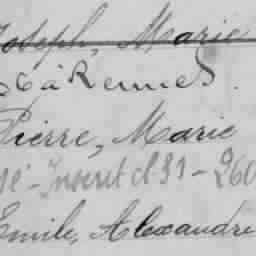 Joseph, Marie
à Rennes.
Pierre, Marie
Inscrit cl 31 - 260
Emile, Alexandre